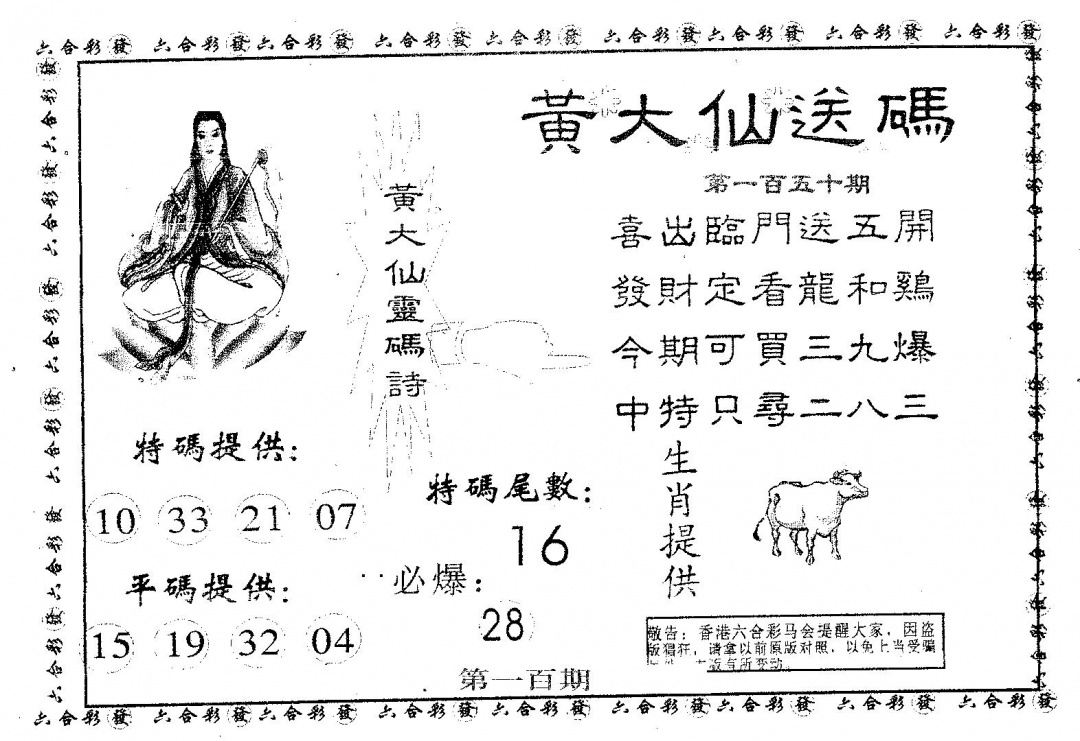 六合彩發 六合彩發 六合彩發 六合彩發 六合彩發 六合彩發 六合彩發 六合彩發 六合彩發
黃大仙送碼
第一百五十期
喜出臨門送五開
發財定看龍和鷄
今期可買三九爆
中特只尋二八三
黃大仙靈碼詩
特碼提供:
10 33 21 07
平碼提供:
15 19 32 04
特碼尾數:
16
必爆:
28
生肖提供
敬告: 香港六合彩马会提醒大家, 因盗
版猖狂, 请拿以前原版对照, 以免上当受骗
版有所变动.
第一百期
六合彩發 六合彩發 六合彩發 六合彩發 六合彩發 六合彩發 六合彩發 六合彩發 六合彩發